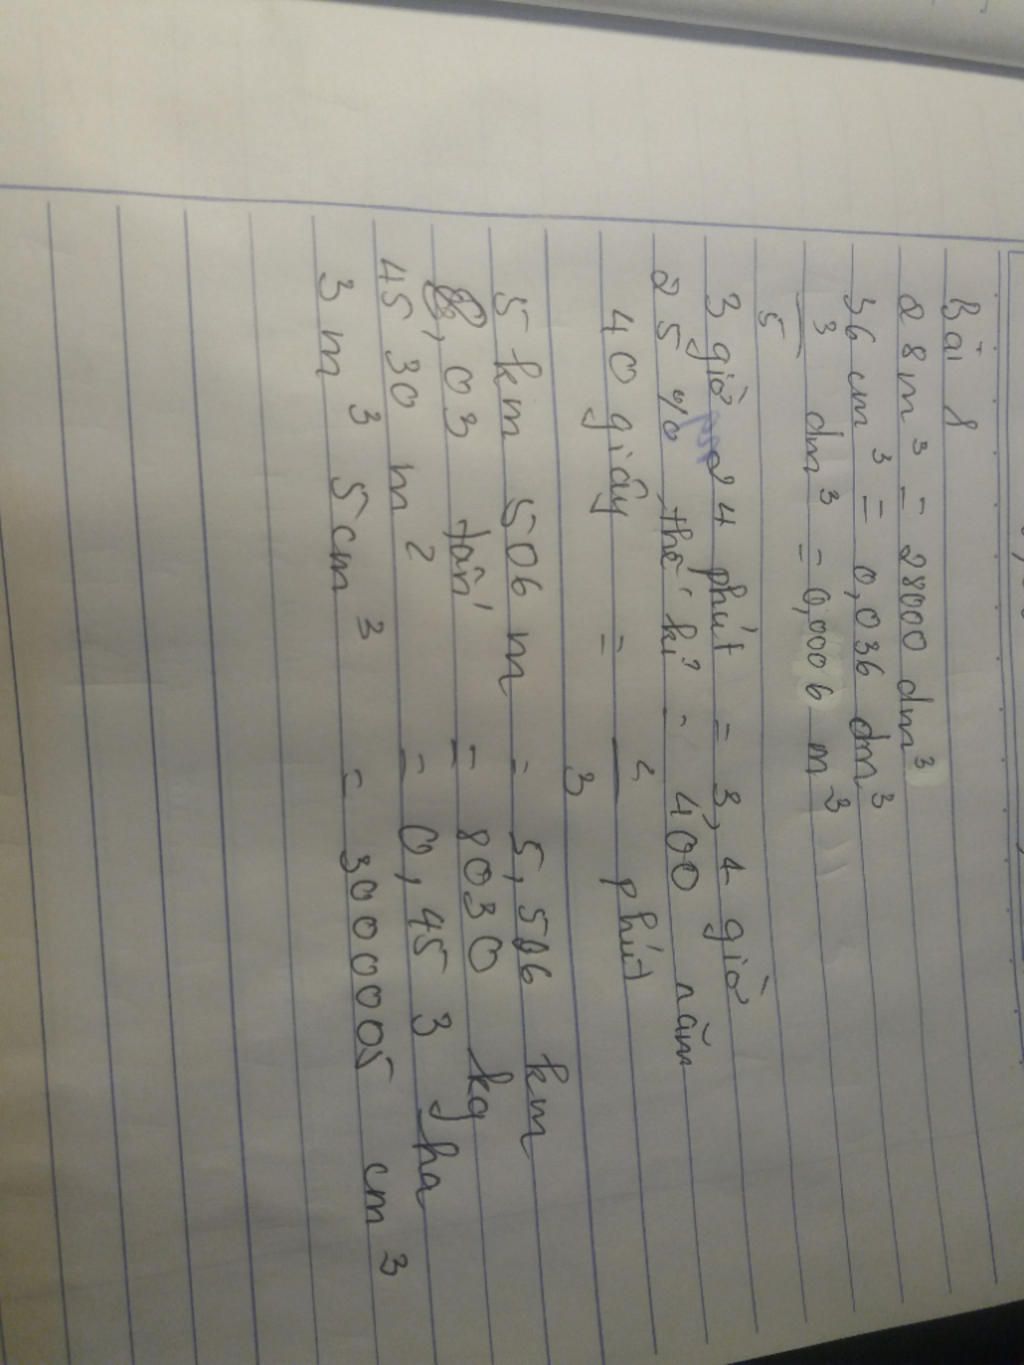 Bài 8
28m³ = 28000 dm³
36 cm³ = 0,036 dm³
3/5 dm³ = 0,0006 m³
3 giờ 24 phút = 3,4 giờ
25% thế kỉ = 400 năm
40 giây = 2/3 phút
5 km 506 m = 5,506 km
8,03 tấn = 8030 kg
4530 m² = 0,453 ha
3 m³ 5cm³ = 3000005 cm³